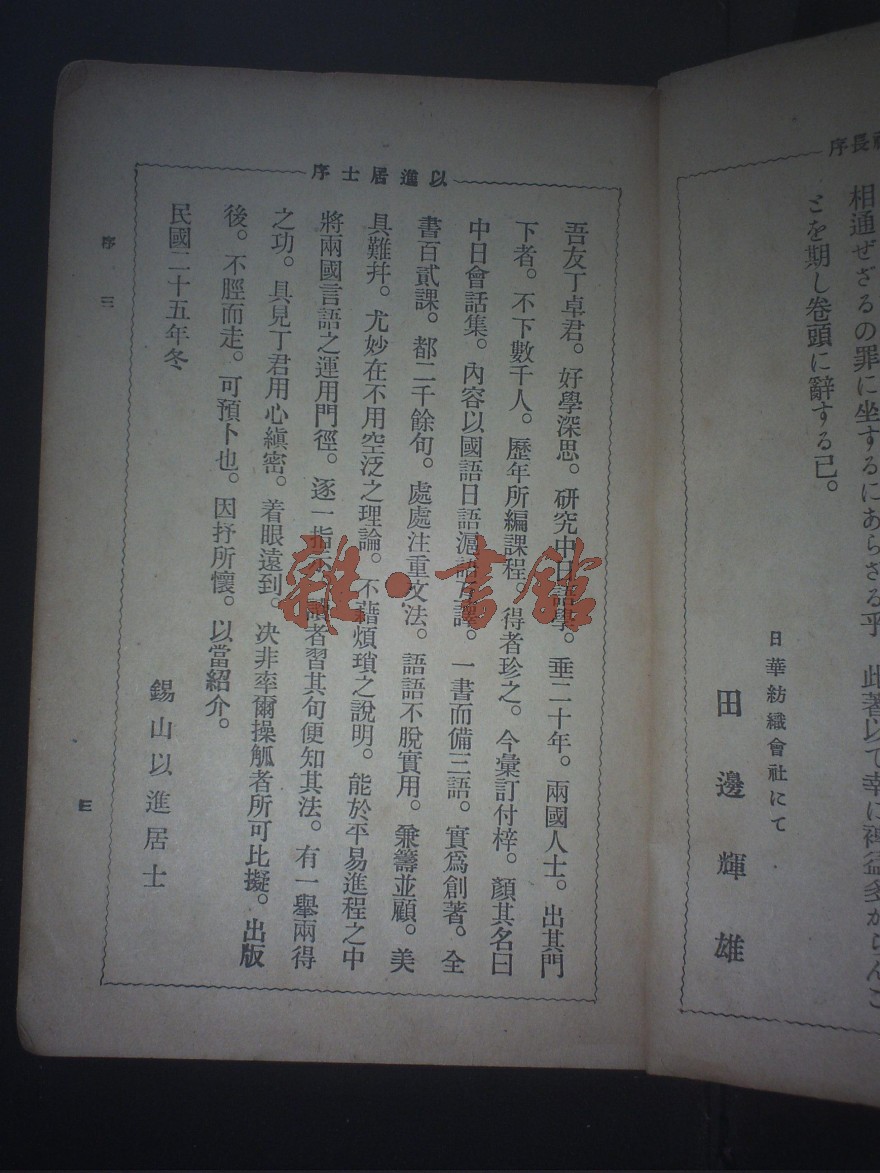 長序
相通ぜざるの罪に坐するにあらざる乎
此著以て幸に裨益多からんこ
とを期し卷頭に辭する已。
日華紡織會社にて
田邊輝雄
以進居士序
吾友丁卓君。好學深思。研究中日語學。垂二十年。兩國人士。出其門
下者。不下數千人。歷年所編課程。得者珍之。今彙訂付梓。顏其名曰
中日會話集。內容以國語日語滬語互譯。一書而備三語。實爲創著。全
書百貳課。都二千餘句。處處注重文法。語語不脫實用。兼籌並顧。美
具難幷。尤妙在不用空泛之理論。不藉煩瑣之說明。能於平易進程之中
將兩國言語之運用門徑。逐一指示。讀者習其句便知其法。有一舉兩得
之功。具見丁君用心縝密。着眼遠到。决非率爾操觚者所可比擬。出版
後。不脛而走。可預卜也。因抒所懷。以當紹介。
民國二十五年冬
錫山以進居士
序三
三
雜·書館